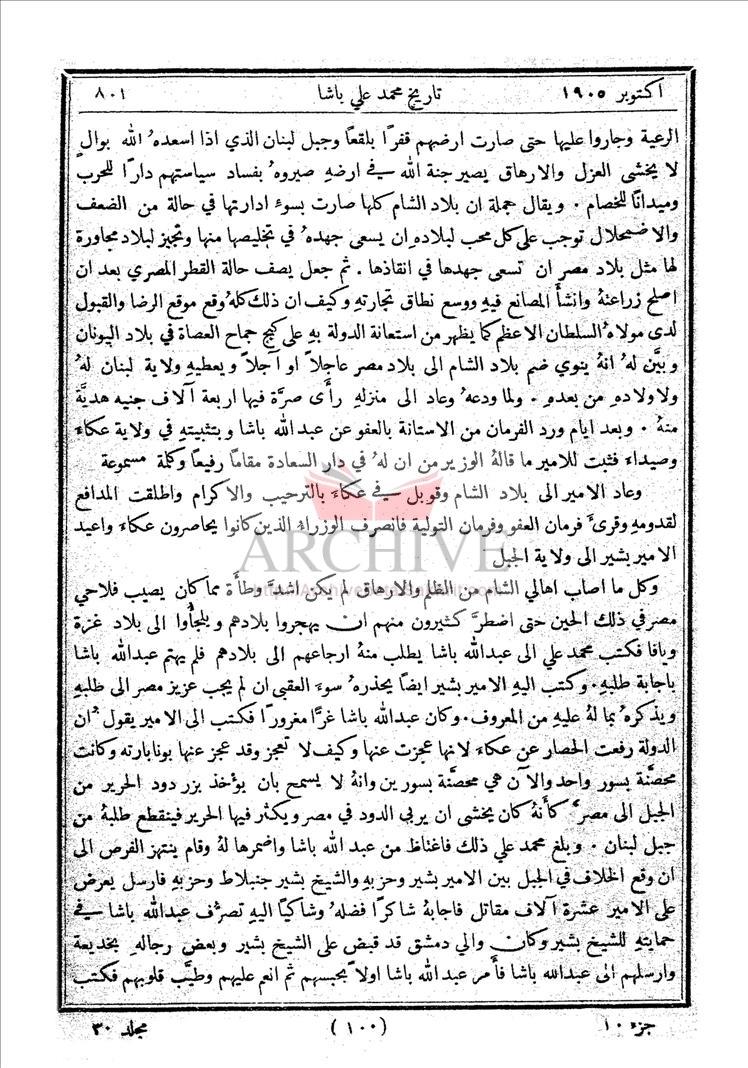 اكتوبر ١٩٠٥ تاريخ محمد علي باشا ٨٠١
الرعية وجاروا عليها حتى صارت ارضهم قفرًا بلقعًا وجبل لبنان الذي اذا اسعدهُ الله بوالٍ
لا يخشى العزل والارهاق يصير جنة الله في ارضهِ صيروهُ بفساد سياستهم دارًا للحرب
وميدانًا للخصام . ويقال جملة ان بلاد الشام كلها صارت بسوء ادارتها في حالة من الضعف
والاضمحلال توجب على كل محب لبلاده ان يسعى جهدهُ في تخليصها منها وتجيز لبلاد مجاورة
لها مثل بلاد مصر ان تسعى جهدها في انقاذها . ثم جعل يصف حالة القطر المصري بعد ان
اصلح زراعتهُ وانشأ المصانع فيهِ ووسع نطاق تجارتهِ وكيف ان ذلك كلهُ وقع موقع الرضا والقبول
لدى مولاهُ السلطان الاعظم كما يظهر من استعانة الدولة بهِ على كبح جماح العصاة في بلاد اليونان
وبيَّن لهُ انهُ ينوي ضم بلاد الشام الى بلاد مصر عاجلاً او آجلاً ويعطيهِ ولاية لبنان لهُ
ولاولادهِ من بعدهِ . ولما ودعهُ وعاد الى منزلهِ رأى صرَّة فيها اربعة آلاف جنيه هديَّة
منهُ . وبعد ايام ورد الفرمان من الاستانة بالعفو عن عبد الله باشا وبتثبيتهِ في ولاية عكاء
وصيداء فثبت للامير ما قالهُ الوزير من ان لهُ في دار السعادة مقامًا رفيعًا وكلمة مسموعة
وعاد الامير الى بلاد الشام وقوبل في عكاء بالترحيب والاكرام واطلقت المدافع
لقدومهِ وقرئ فرمان العفو وفرمان التولية فانصرف الوزراء الذين كانوا يحاصرون عكاء واعيد
الامير بشير الى ولاية الجبل
ARCHIVE
وكل ما اصاب اهالي الشام من الظلم والارهاق لم يكن اشدَّ وطأة مما كان يصيب فلاحي
مصر في ذلك الحين حتى اضطرَّ كثيرون منهم ان يهجروا بلادهم ويلجأوا الى بلاد غزة
ويافا فكتب محمد علي الى عبدالله باشا يطلب منهُ ارجاعهم الى بلادهم فلم يهتم عبدالله باشا
باجابة طلبهِ . وكتب اليهِ الامير بشير ايضًا يحذرهُ سوء العقبى ان لم يجب عزيز مصر الى طلبهِ
ويذكرهُ بما لهُ عليهِ من المعروف . وكان عبدالله باشا غرًّا مغرورًا فكتب الى الامير يقول "ان
الدولة رفعت الحصار عن عكاء لانها عجزت عنها وكيف لا تعجز وقد عجز عنها بونابارته وكانت
محصَّنة بسور واحد والآن هي محصَّنة بسورين وانهُ لا يسمح بان يؤخذ بزر دود الحرير من
الجبل الى مصر" كأنهُ كان يخشى ان يربى الدود في مصر ويكثر فيها الحرير فينقطع طلبهُ من
جبل لبنان . وبلغ محمد علي ذلك فاغتاظ من عبد الله باشا واضمرها لهُ وقام ينتهز الفرص الى
ان وقع الخلاف في الجبل بين الامير بشير وحزبهِ والشيخ بشير جنبلاط وحزبهِ فارسل يعرض
على الامير عشرة آلاف مقاتل فاجابهُ شاكرًا فضلهُ وشاكيًا اليهِ تصرُّف عبدالله باشا في
حمايتهِ للشيخ بشير وكان والي دمشق قد قبض على الشيخ بشير وبعض رجالهِ بخديعة
وارسلهم الى عبدالله باشا فأمر عبدالله باشا اولاً بحبسهم ثم انعم عليهم وطيَّب قلوبهم فكتب
جزء ١٠ (١٠٠) مجلد ٣٠